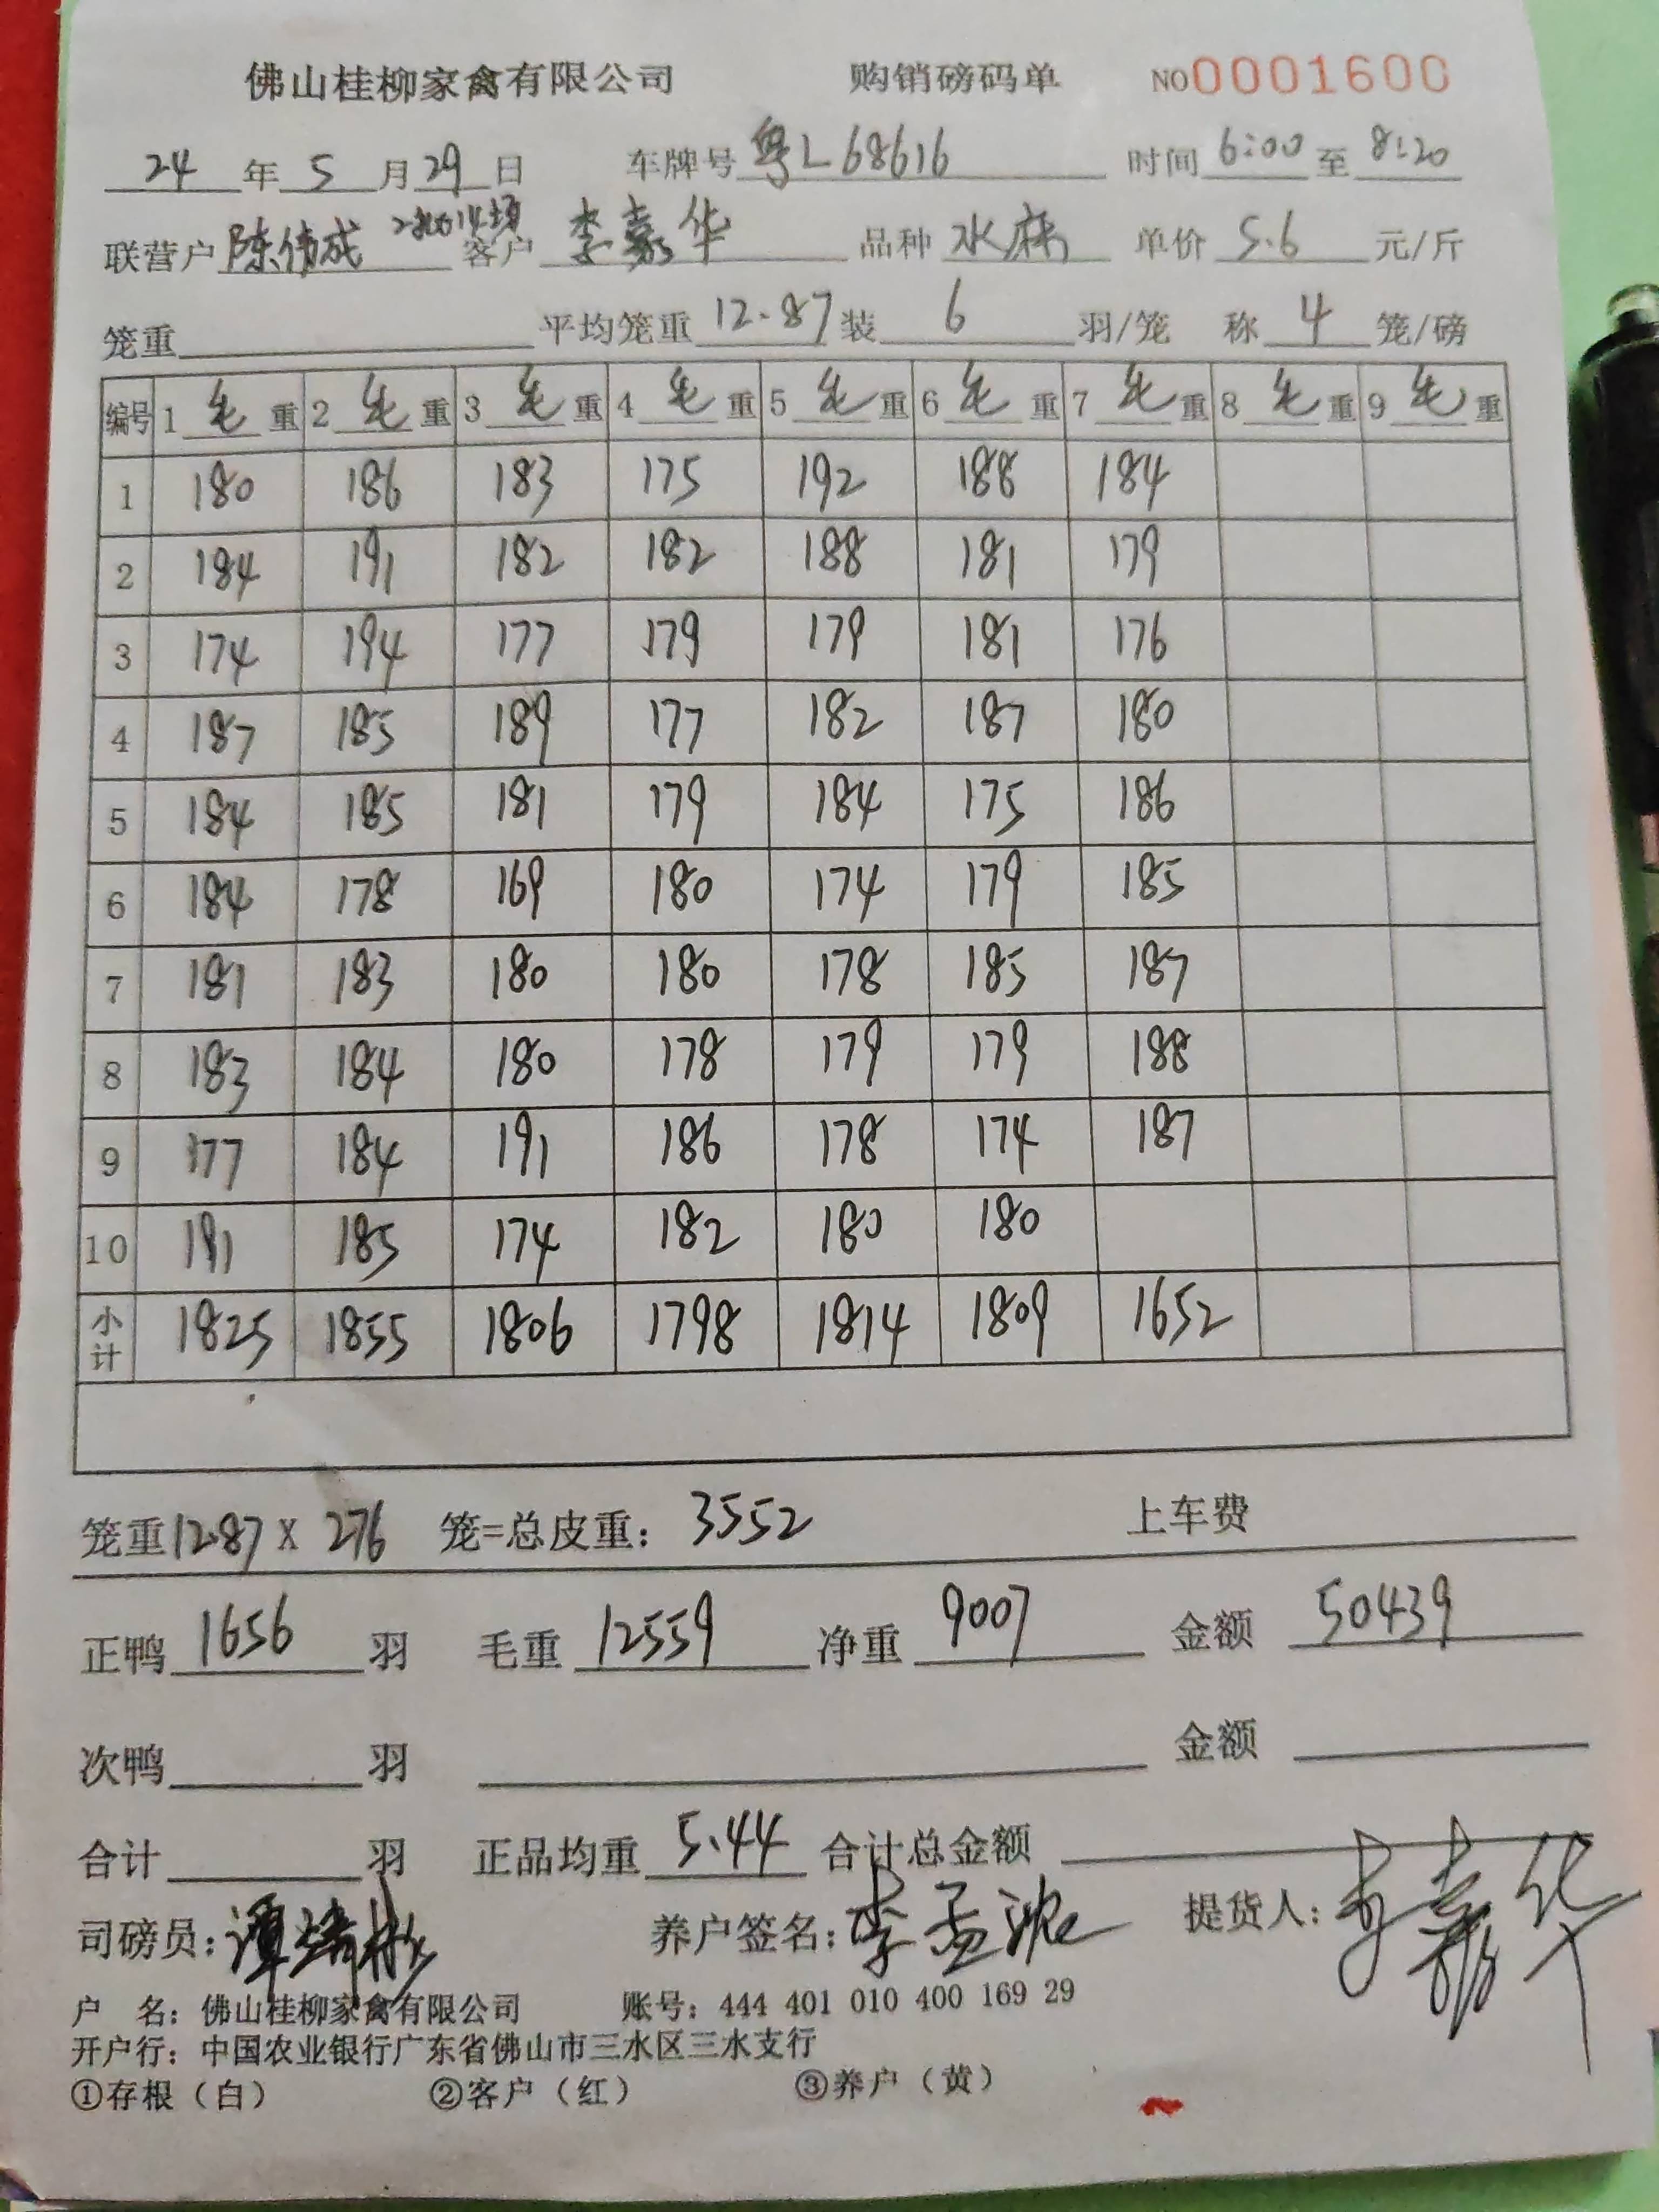 佛山桂柳家禽有限公司 购销磅码单 NO0001600
24 年 5 月 29 日 车牌号 粤L68616 时间 6:00 至 8:20
联营户 陈伟成 客户 李嘉华 品种 水麻 单价 5.6 元/斤
笼重 平均笼重 12.87 装 6 羽/笼 称 4 笼/磅
编号 1 毛 重 2 毛 重 3 毛 重 4 毛 重 5 毛 重 6 毛 重 7 毛 重 8 毛 重 9 毛 重
1 180 186 183 175 192 188 184
2 184 191 182 182 188 181 179
3 174 194 177 179 179 181 176
4 187 185 189 177 182 187 180
5 184 185 181 179 184 175 186
6 184 178 169 180 174 179 185
7 181 183 180 180 178 185 187
8 183 184 180 178 179 179 188
9 177 184 191 186 178 174 187
10 191 185 174 182 180 180
小计 1825 1855 1806 1798 1814 1809 1652
笼重12.87 X 276 笼=总皮重: 3552 上车费
正鸭 1656 羽 毛重 12559 净重 9007 金额 50439
次鸭 羽 金额
合计 羽 正品均重 5.44 合计总金额
司磅员: 养户签名: 李孟 提货人: 李嘉华
户 名: 佛山桂柳家禽有限公司 账号: 444 401 010 400 169 29
开户行: 中国农业银行广东省佛山市三水区三水支行
①存根（白） ②客户（红） ③养户（黄）